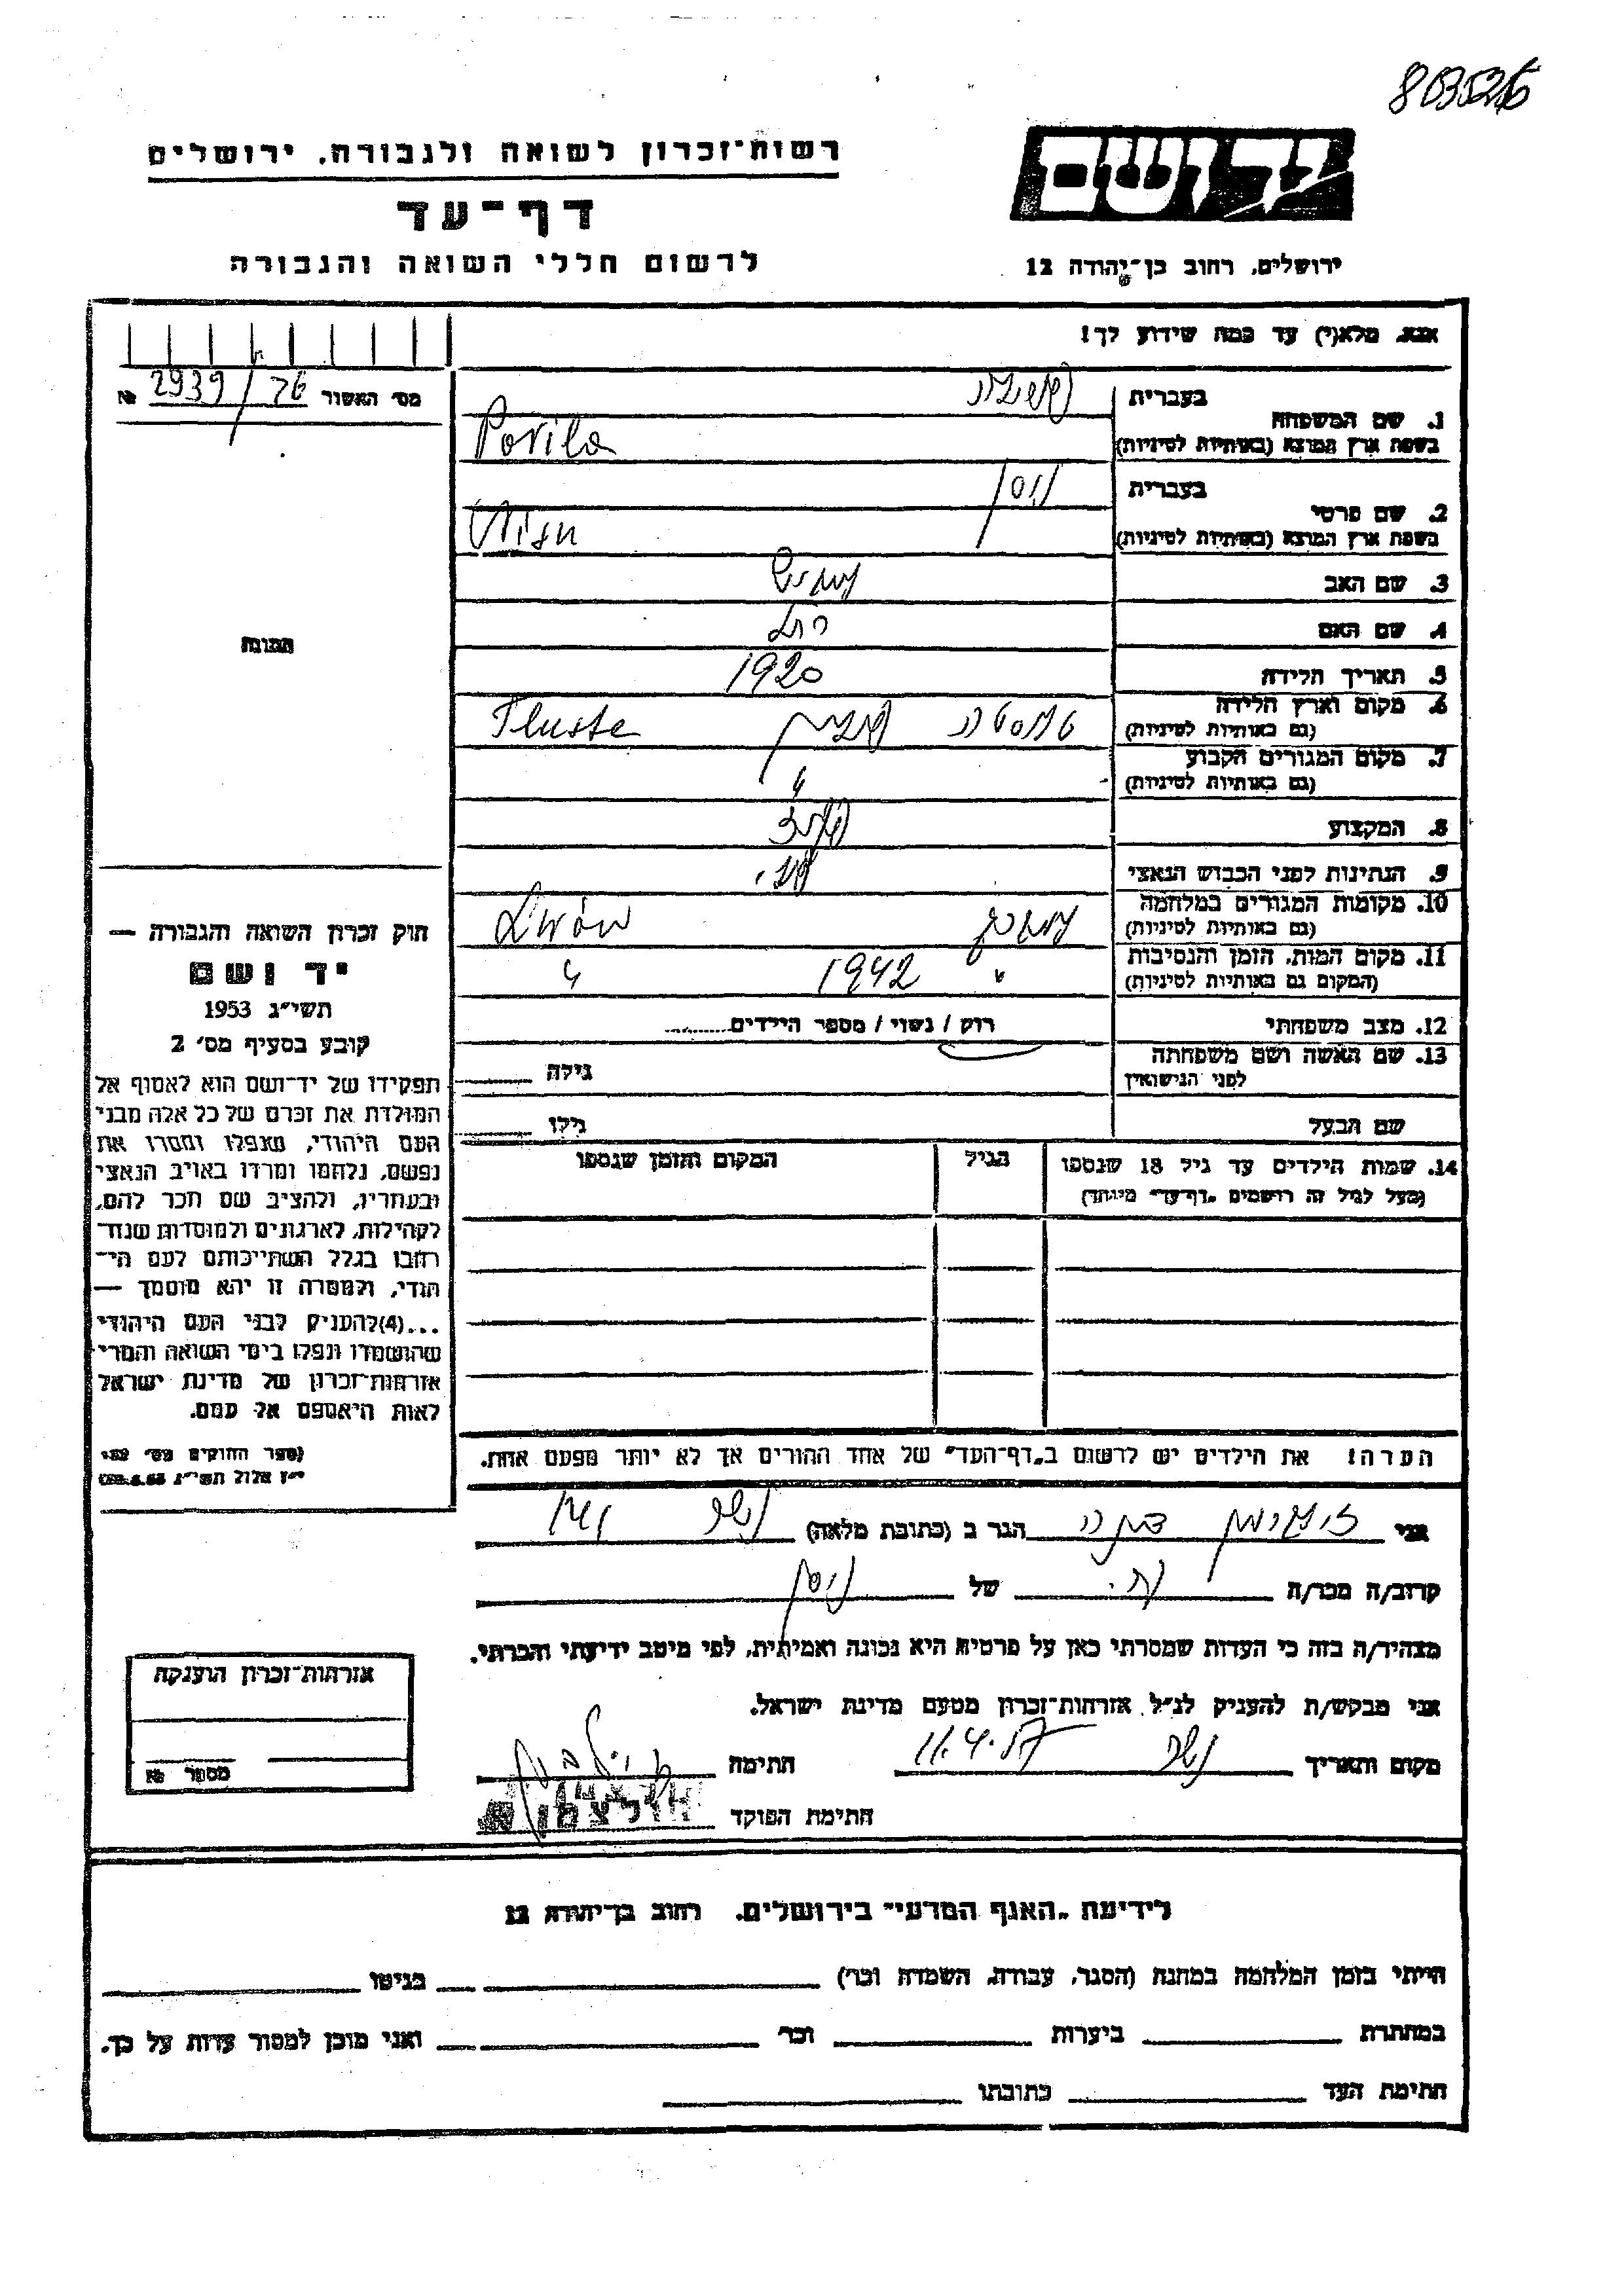 רשות־זכרון לשואה ולגבורה, ירושלים
דף־עד
לרשום חללי השואה והגבורה
יד ושם
ירושלים, רחוב בן־יהודה 12
אנא, מלא(י) עד כמה שידוע לך!
מס׳ האשור 76/2939 №
1. שם המשפחה
בעברית
בשפת ארץ המוצא (באותיות לטיניות) Porila
2. שם פרטי
בעברית ניסן
בשפת ארץ המוצא (באותיות לטיניות) Nisn
3. שם האב
4. שם האם רחל
5. תאריך הלידה 1920
6. מקום וארץ הלידה
(גם באותיות לטיניות) טלוסטה פולין Tluste
7. מקום המגורים הקבוע
(גם באותיות לטיניות) "
8. המקצוע
9. הנתינות לפני הכבוש הנאצי פול׳
10. מקומות המגורים במלחמה
(גם באותיות לטיניות) למברג Lwów
11. מקום המות, הזמן והנסיבות
(המקום גם באותיות לטיניות) " 1942 "
12. מצב משפחתי רווק / נשוי / מספר הילדים
13. שם האשה ושם משפחתה
לפני הנישואין גילה
שם הבעל גילו
14. שמות הילדים עד גיל 18 שנספו
(מעל לגיל זה רושמים „דף־עד״ מיוחד)
הגיל
המקום והזמן שנספו
הערה! את הילדים יש לרשום ב„דף־העד״ של אחד ההורים אך לא יותר מפעם אחת.
תמונה
חוק זכרון השואה והגבורה —
יד ושם
תשי״ג 1953
קובע בסעיף מס׳ 2
תפקידו של יד־ושם הוא לאסוף אל
המולדת את זכרם של כל אלה מבני
העם היהודי, שנפלו ומסרו את
נפשם, נלחמו ומרדו באויב הנאצי
ובעוזריו, ולהציב שם וזכר להם,
לקהילות, לארגונים ולמוסדות שנח־
רבו בגלל השתייכותם לעם הי־
הודי, ולמטרה זו יהא מוסמך —
...(4)להעניק לבני העם היהודי
שהושמדו ונפלו בימי השואה והמרי
אזרחות־זכרון של מדינת ישראל
לאות היאספם אל עמם.
(ספר החוקים מס׳ 132
י״ז אלול תשי״ג 28.8.53)
אני הגר ב (כתובת מלאה) נשר
קרוב/ה מכר/ה של ניסן
מצהיר/ה בזה כי העדות שמסרתי כאן על פרטיה היא נכונה ואמיתית, לפי מיטב ידיעתי והכרתי.
אני מבקש/ת להעניק לנ״ל אזרחות־זכרון מטעם מדינת ישראל.
מקום ותאריך נשר 11.4.57 חתימה
חתימת הפוקד
אזרחות־זכרון הוענקה
מספר №
לידיעת „האגף המדעי״ בירושלים, רחוב בן־יהודה 12
הייתי בזמן המלחמה במחנה (הסגר, עבודה, השמדה וכו׳) בגיטו
במחתרת ביערות וכו׳ ואני מוכן למסור עדות על כך.
חתימת העד כתובתו